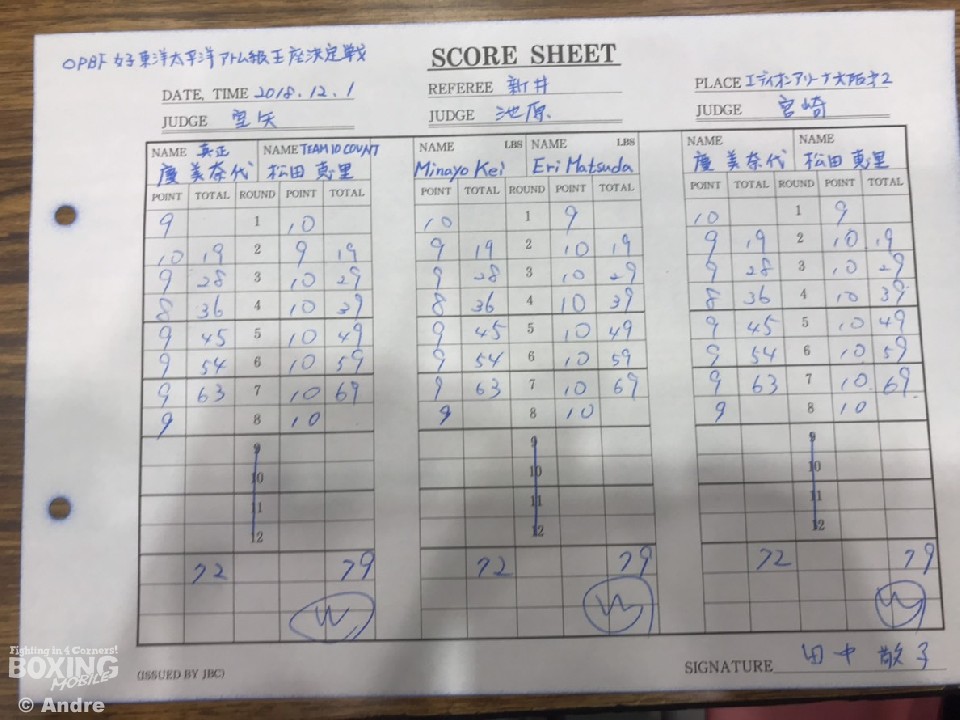 OPBF女子東洋太平洋アトム級王座決定戦
SCORE SHEET
DATE, TIME 2018.12.1 REFEREE 新井 PLACE エディオンアリーナ大阪第2
JUDGE JUDGE 池原 JUDGE 宮崎
NAME 真正 NAME TEAM 10 COUNT NAME LBS NAME LBS NAME NAME
慶 美奈代 松田 恵里 Minayo Kei Eri Matsuda 慶 美奈代 松田 恵里
POINT TOTAL ROUND POINT TOTAL POINT TOTAL ROUND POINT TOTAL POINT TOTAL ROUND POINT TOTAL
9 1 10 10 1 9 10 1 9
10 19 2 9 19 9 19 2 10 19 9 19 2 10 19
9 28 3 10 29 9 28 3 10 29 9 28 3 10 29
8 36 4 10 39 8 36 4 10 39 8 36 4 10 39
9 45 5 10 49 9 45 5 10 49 9 45 5 10 49
9 54 6 10 59 9 54 6 10 59 9 54 6 10 59
9 63 7 10 69 9 63 7 10 69 9 63 7 10 69
9 8 10 9 8 10 9 8 10
9 9 9
10 10 10
11 11 11
12 12 12
72 79 72 79 72 79
W W W
(ISSUED BY JBC) SIGNATURE 田中 敬子
Fighting in 4 Corners!
BOXING
MOBILE
© Andre